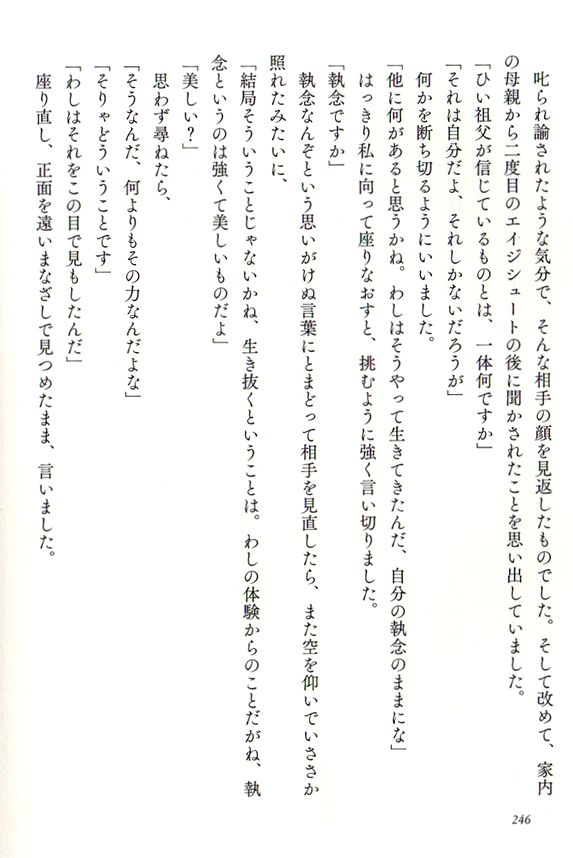 叱られ諭されたような気分で、そんな相手の顔を見返したものでした。そして改めて、家内
の母親から二度目のエイジシュートの後に聞かされたことを思い出していました。
「ひい祖父が信じているものとは、一体何ですか」
「それは自分だよ、それしかないだろうが」
何かを断ち切るようにいいました。
「他に何があると思うかね。わしはそうやって生きてきたんだ、自分の執念のままにな」
はっきり私に向って座りなおすと、挑むように強く言い切りました。
「執念ですか」
執念なんぞという思いがけぬ言葉にとまどって相手を見直したら、また空を仰いでいささか
照れたみたいに、
「結局そういうことじゃないかね、生き抜くということは。わしの体験からのことだがね、執
念というのは強くて美しいものだよ」
「美しい？」
思わず尋ねたら、
「そうなんだ、何よりもその力なんだよな」
「そりゃどういうことです」
「わしはそれをこの目で見もしたんだ」
座り直し、正面を遠いまなざしで見つめたまま、言いました。
246